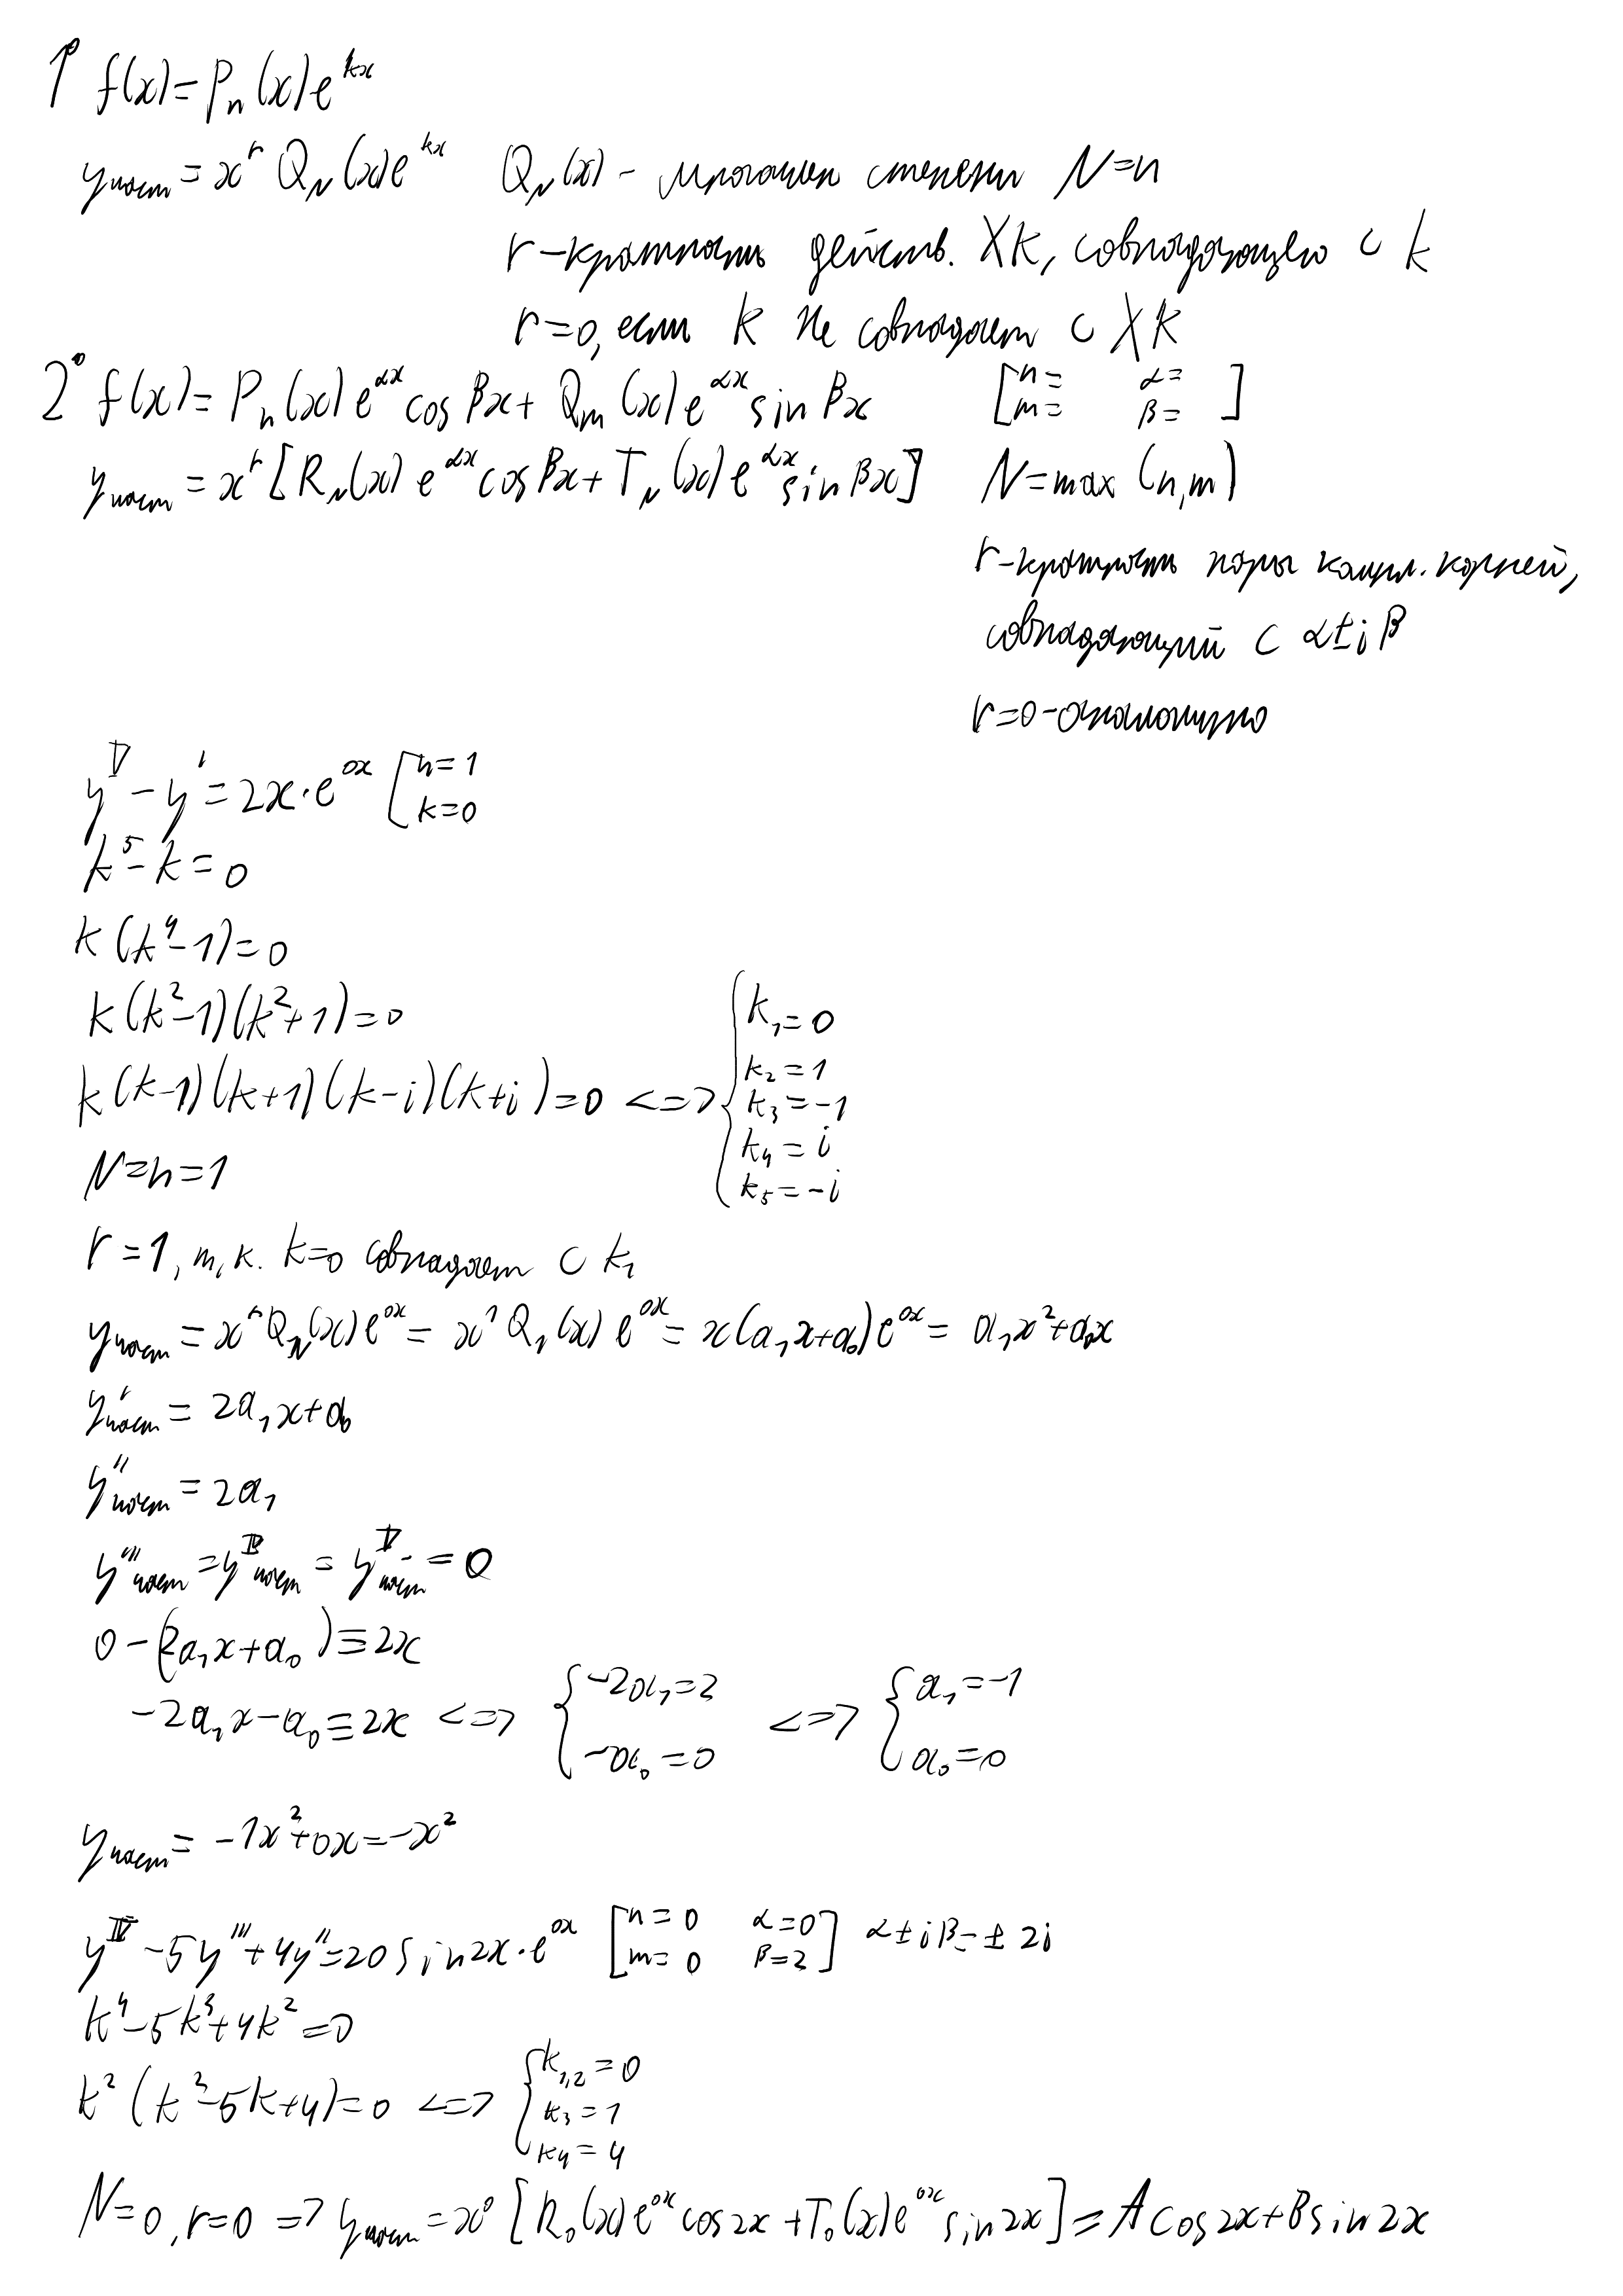 1° f(x)=Pₙ(x)e^{kx}
y_{част}=x^r Q_N(x)e^{kx} Q_N(x) - многочлен степени N=n
r-кратность действ. ХК, совпадающего с k
r=0, если k не совпадает с ХК
2° f(x)=Pₙ(x)e^{αx}cos βx+Qₘ(x)e^{αx}sin βx [n= α= m= β= ]
y_{част}=x^r[R_N(x)e^{αx}cos βx+T_N(x)e^{αx}sin βx] N=max(n,m)
r-кратность пары компл. корней,
совпадающий с α±iβ
r=0-аналогично
y^V-y'=2x·e^{0x} [n=1 k=0
k⁵-k=0
k(k⁴-1)=0
k(k²-1)(k²+1)=0
k(k-1)(k+1)(k-i)(k+i)=0 <=> { k₁=0 k₂=1 k₃=-1 k₄=i k₅=-i
N=n=1
r=1, т.к. k=0 совпадает с k₁
y_{част}=x^r Q_N(x)e^{0x}=x¹Q₁(x)e^{0x}=x(a₁x+a₀)e^{0x}=a₁x²+a₀x
y'_{част}=2a₁x+a₀
y''_{част}=2a₁
y'''_{част}=y^{IV}_{част}=y^V_{част}=0
0-(2a₁x+a₀)≡2x
-2a₁x-a₀≡2x <=> { -2a₁=2 -a₀=0 <=> { a₁=-1 a₀=0
y_{част}=-1x²+0x=-x²
y^{IV}-5y'''+4y''=20sin2x·e^{0x} [n=0 α=0 m=0 β=2] α±iβ=±2i
k⁴-5k³+4k²=0
k²(k²-5k+4)=0 <=> { k₁,₂=0 k₃=1 k₄=4
N=0, r=0 => y_{част}=x⁰[R₀(x)e^{0x}cos2x+T₀(x)e^{0x}sin2x]=Acos2x+Bsin2x